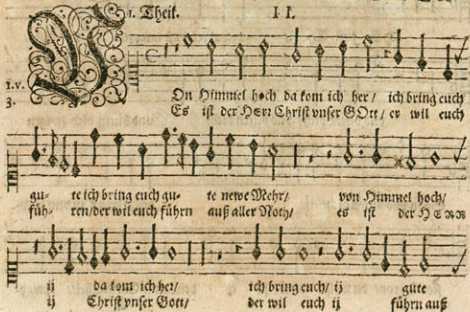 1. Theil. II.
1. v. VOn Himmel hoch da kom ich her/ ich bring euch
3. Es ist der HErr Christ vnser GOtt/ er wil euch
gu- te ich bring euch gu- te newe Mehr/ von Himmel hoch/
füh- ren/ der wil euch führn auß aller Noth/ es ist der HERR
ij da kom ich her/ ich bring euch/ ij gute
ij Christ vnser Gott/ der wil euch ij führn auß